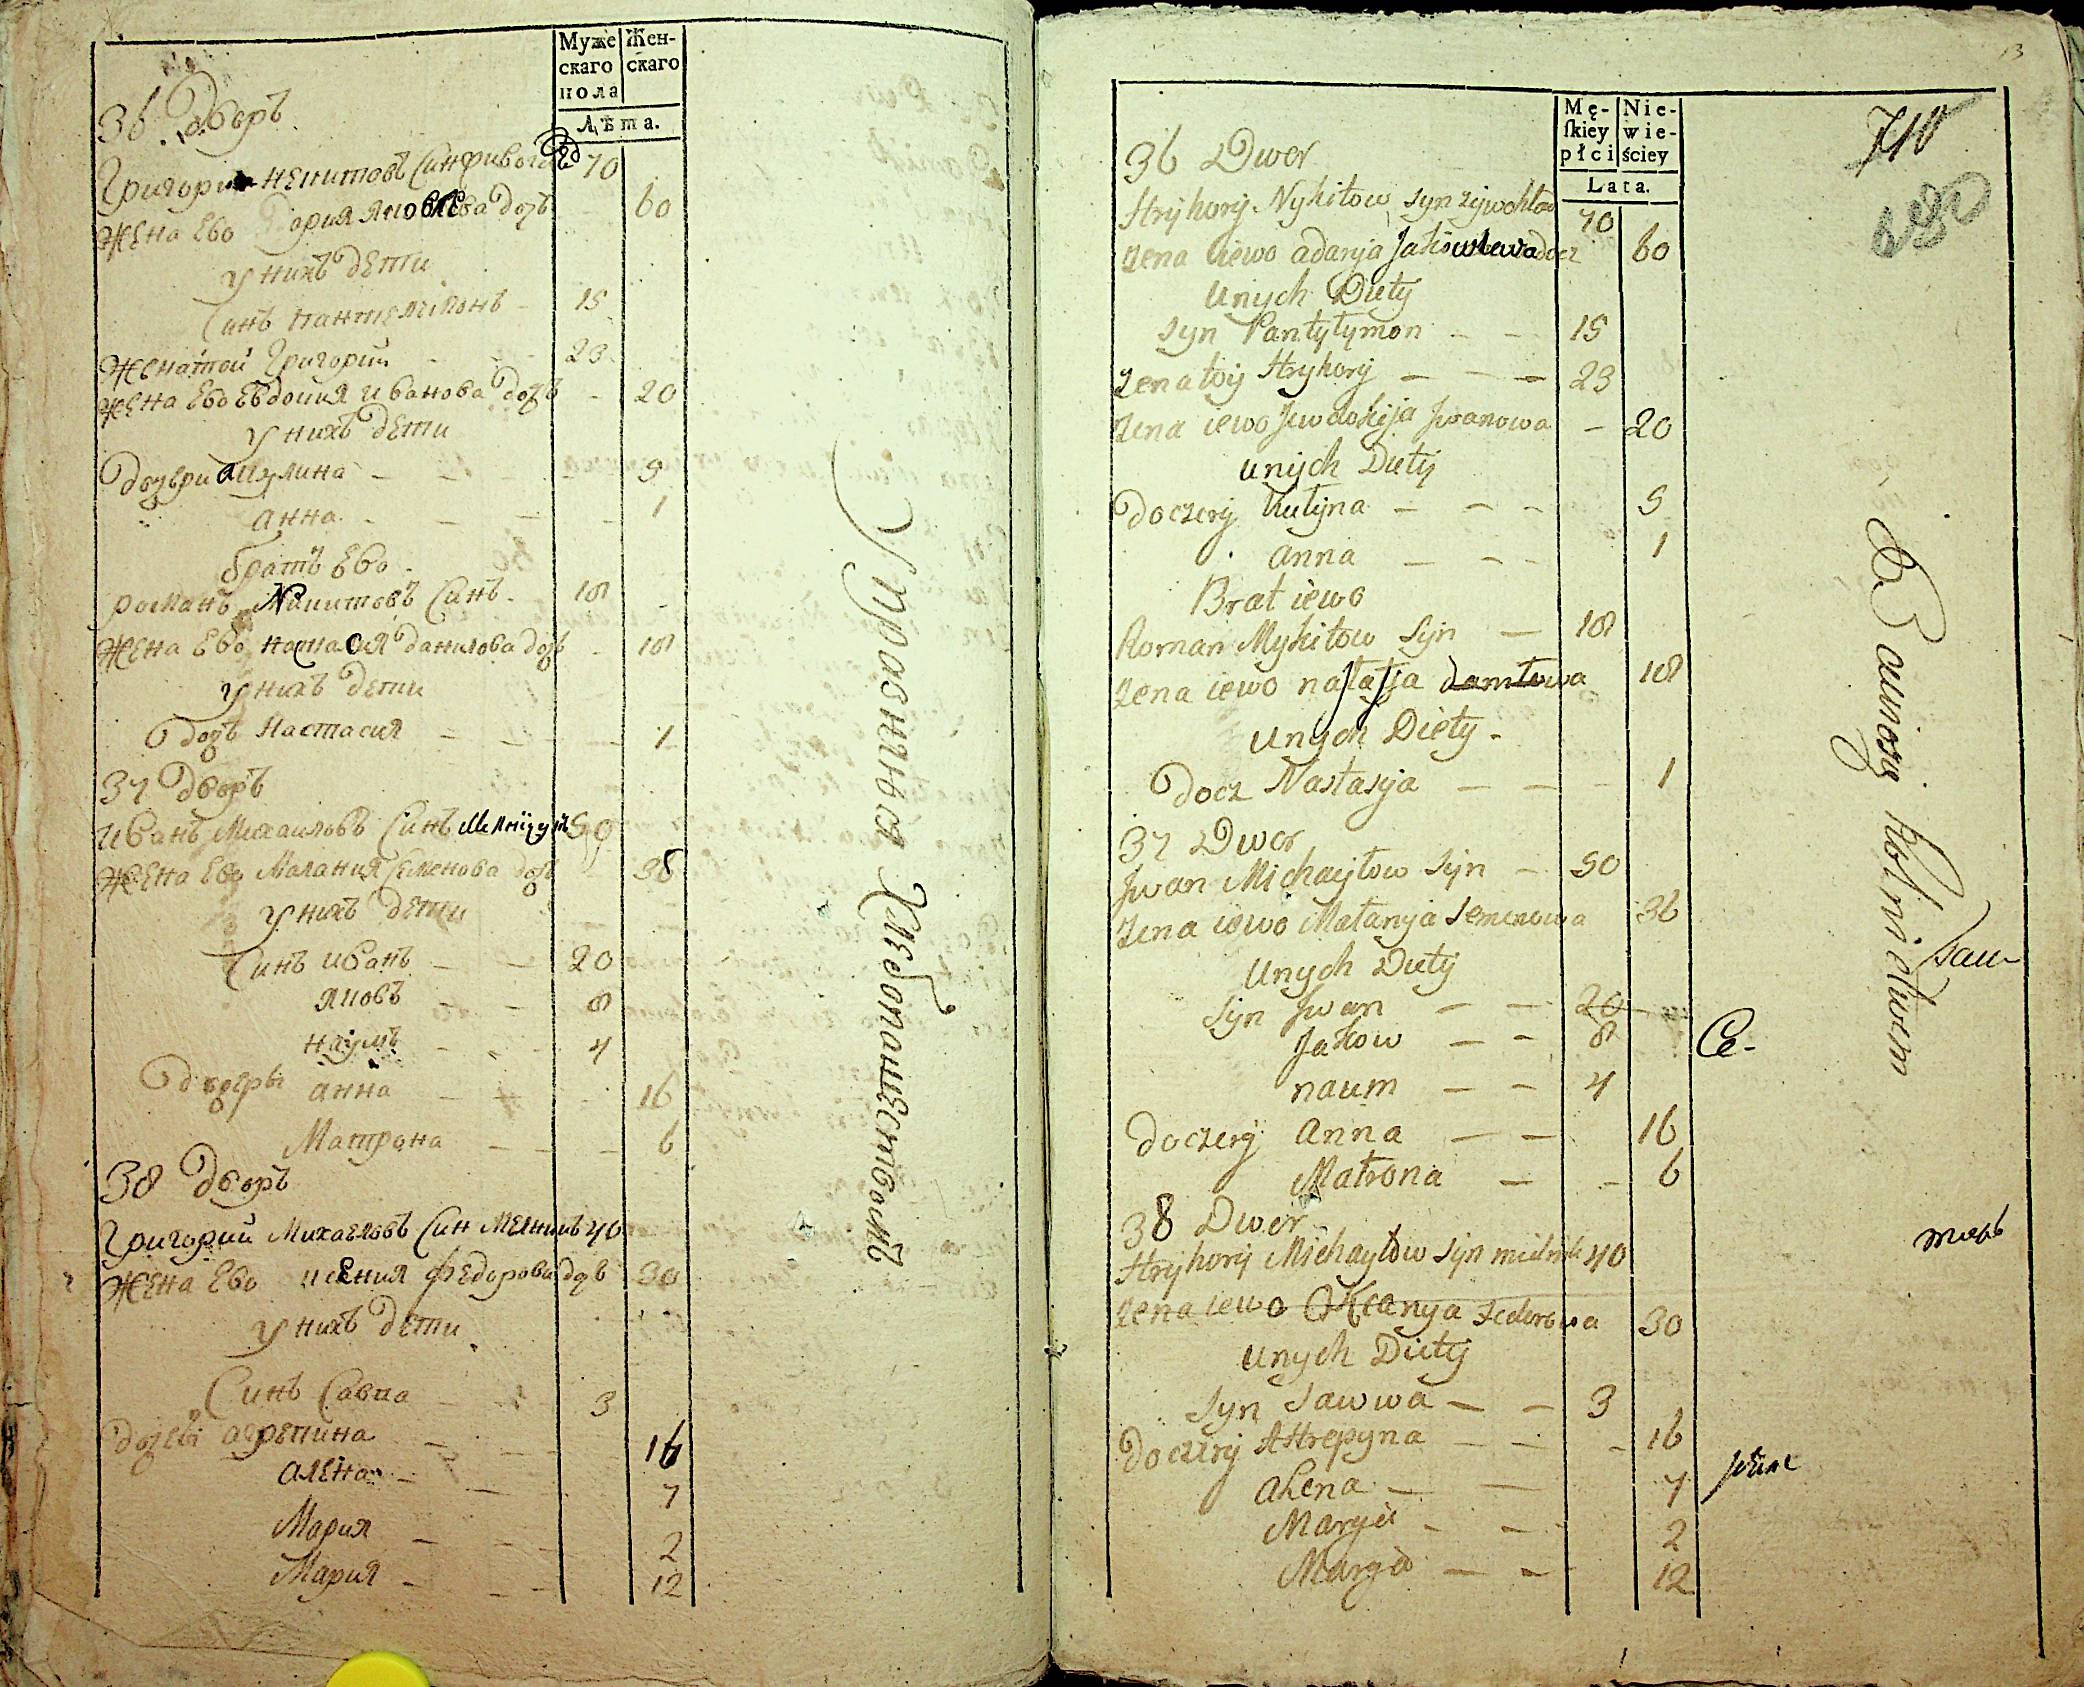 Муже
скаго
пола
Жен-
скаго
Лѣта.
36 дворъ
Григорий Никитовъ Синъ 70
жена Ево Дария Яковлева дочь 60
у нихъ дети
Синъ Пантелимонъ - 15
женатой Григорий - 23
жена Ево Евдокия Иванова дочь - 20
у нихъ дети
дочери Акулина - 5
анна - 1
братъ Ево
романъ Никитовъ Синъ - 18
жена Ево Наталия данилова дочь - 18
у нихъ дети
дочь Настасия - 1
37 дворъ
Иванъ Михаиловъ Синъ 50
жена Ево Малания Семенова дочь 36
у нихъ дети
Синъ иванъ - 20
яковъ - 8
наумъ - 4
дочеры анна - 16
Матрона - 6
38 дворъ
Григорий Михаеловъ Син Мелникъ 40
жена Ево ксения федорова дочь 30
у нихъ дети
Синъ Савка 3
дочери агрепина 16
алена - 7
Мария - 2
Мария - 12
Упражняюся Хлебопашествомъ
Mę-
skiey
płci
Nie-
wie-
ściey
Lata.
13
710
36 Dwor
Hryhory Nykitow syn 70
zena iewo adarya Jakowlewa docz 60
unych Diety
syn Pantylymon - 15
zenatoy Hryhory - 23
zena iewo Jwdokija Jwanowa - 20
unych Diety
doczery Kulyna - 5
anna - 1
Brat iewo
Roman Mykitow Syn - 18
zena iewo natalja daniłowa 18
unych Diety -
docz Nastasya - 1
37 Dwor
Jwan Michayłow Syn - 50
zena iewo Małanya Semenowa 36
unych Diety
syn Jwan - 20
Jakow - 8
naum - 4
doczery anna - 16
Matrona - 6
38 Dwor
Hryhory Michayłow syn mielnik 40
zena iewo Oksanya Fedorowa 30
unych Diety
syn Sawwa - 3
doczery Ahrepyna - 16
alena - 7
Marya - 2
Marya - 12